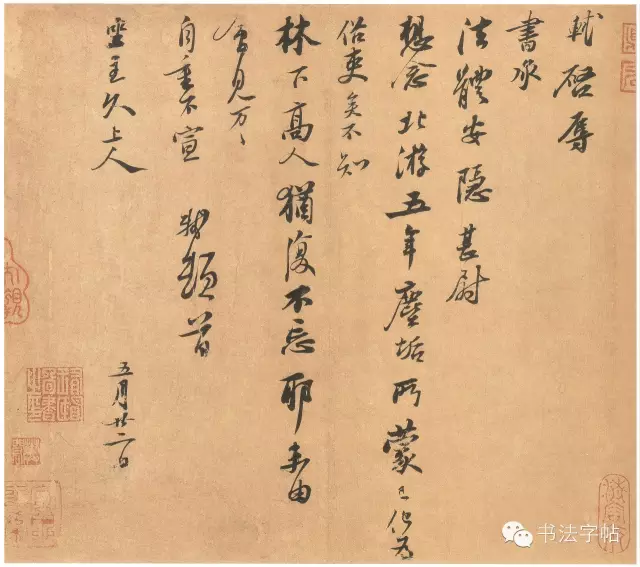 軾啓辱
書承
法體安隱甚尉
想念北游五年塵垢所蒙已化為
俗吏矣不知
林下高人猶復不忘耶未由
會見万万
自重不宣 軾頓首
坐主久上人
五月廿二日
书法字帖